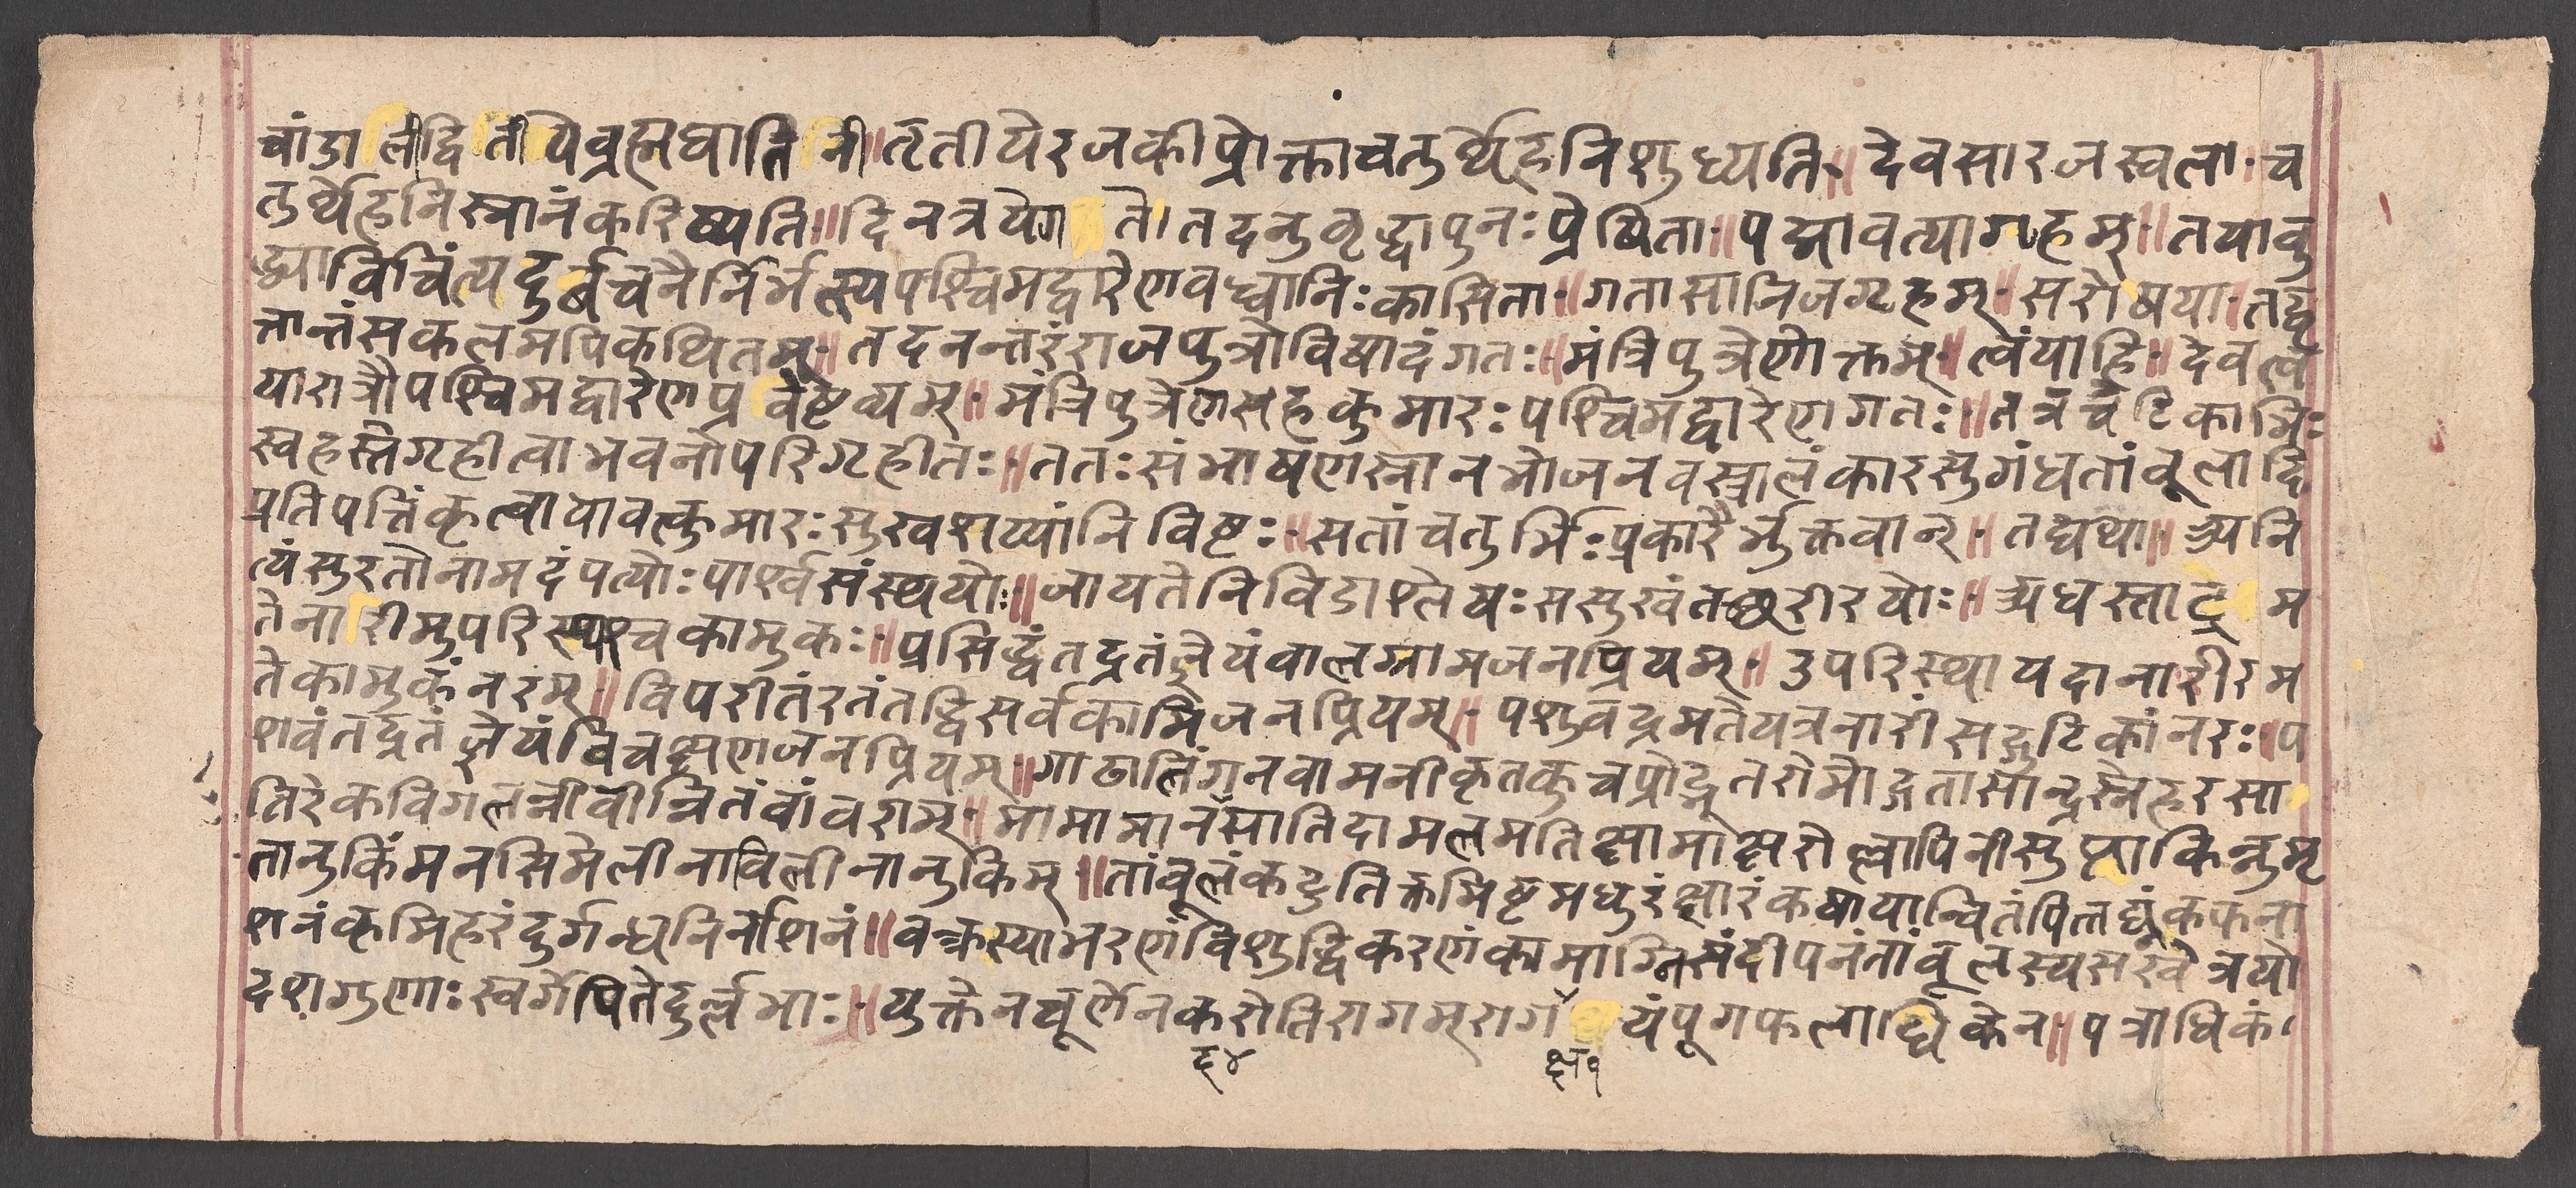 चांडालीद्वितीयेव्रह्मघातिनी॥तृतीयेरजकीप्रोक्ताचतुर्थेहनिशुध्यति॥देवसारजस्वला॥च
तुर्थेहनिस्नानंकरिष्यति॥दिनत्रयेगते।तदनुवृद्धापुनःप्रेषिता॥पद्मावत्यागृहम्॥तयावु
द्ध्याविचिंत्यदुर्बचनैर्निर्भत्स्यपश्चिमद्वारेणवध्वानिःकासिता॥गतासानिजगृहम्॥सरोषया॥तद्वृ
त्तान्तंसकलमपिकथितम्॥तदनन्तरंराजपुत्रोविषादंगतः॥मंत्रिपुत्रेणोक्तम्॥त्वंयाहि॥देवत्व
यारात्रौपश्चिमद्वारेणप्रवेष्टव्यम्॥मंत्रिपुत्रेणसहकुमारःपश्चिमद्वारेणगतः॥तत्रचेटिकाभिः
स्वहस्तेगृहीत्वाभवनोपरिगृहीतः॥ततःसंभाषणस्नानभोजनवस्त्रालंकारसुगंधतांवूलादि
प्रतिपत्तिंकृत्वायावत्कुमारःसुखशय्यांनिविष्टः॥सतांचतुर्भिःप्रकारैर्भुक्तवान्॥तद्यथा॥अनि
त्यंसुरतोनामदंपत्योःपार्श्वसंस्थयोः॥जायतेनिविडाश्लेषःससुखंतच्छरीरयोः॥अधस्ताद्रम
तेनारीमुपरिस्थाश्चकामुकः॥प्रसिद्धंतद्रतंज्ञेयंवालग्रामजनप्रियम्॥उपरिस्थायदानारीरम
तेकामुकंनरम्॥विपरीतंरतंतद्धिसर्वकामिजनप्रियम्॥पशुवद्रमतेयत्रनारींसद्गुटिकांनरः॥प
शवंतद्रतंज्ञेयंविचक्षणजनप्रियम्॥गाढालिंगनवामनीकृतकुचप्रोद्भूतरोमोद्गतासान्द्रस्नेहरसा
तिरेकविगलन्नीवीन्नितंवांवराम्॥मामामानंसातिदामलमतिक्षामाक्षरोल्लापिनीसुप्ताकिन्नुमृ
तानुकिंमनसिमेलीनाविलीनानुकिम्॥तांवूलंकटुतिक्तमिष्टमधुरंक्षारंकषायान्वितंपित्तघ्नंकफना
शनंकृमिहरंदुर्गन्धनिर्नाशिनं॥वक्त्रस्याभरणंविशुद्धिकरणंकामाग्निसंदीपनंतांवूलस्यसखेत्रयो
दशगुणाःस्वर्गेपितेदुर्ल्लभाः॥युक्तेनचूर्णेनकरोतिरागम्रागक्षयंपूगफलाधिकेन॥पत्राधिकं